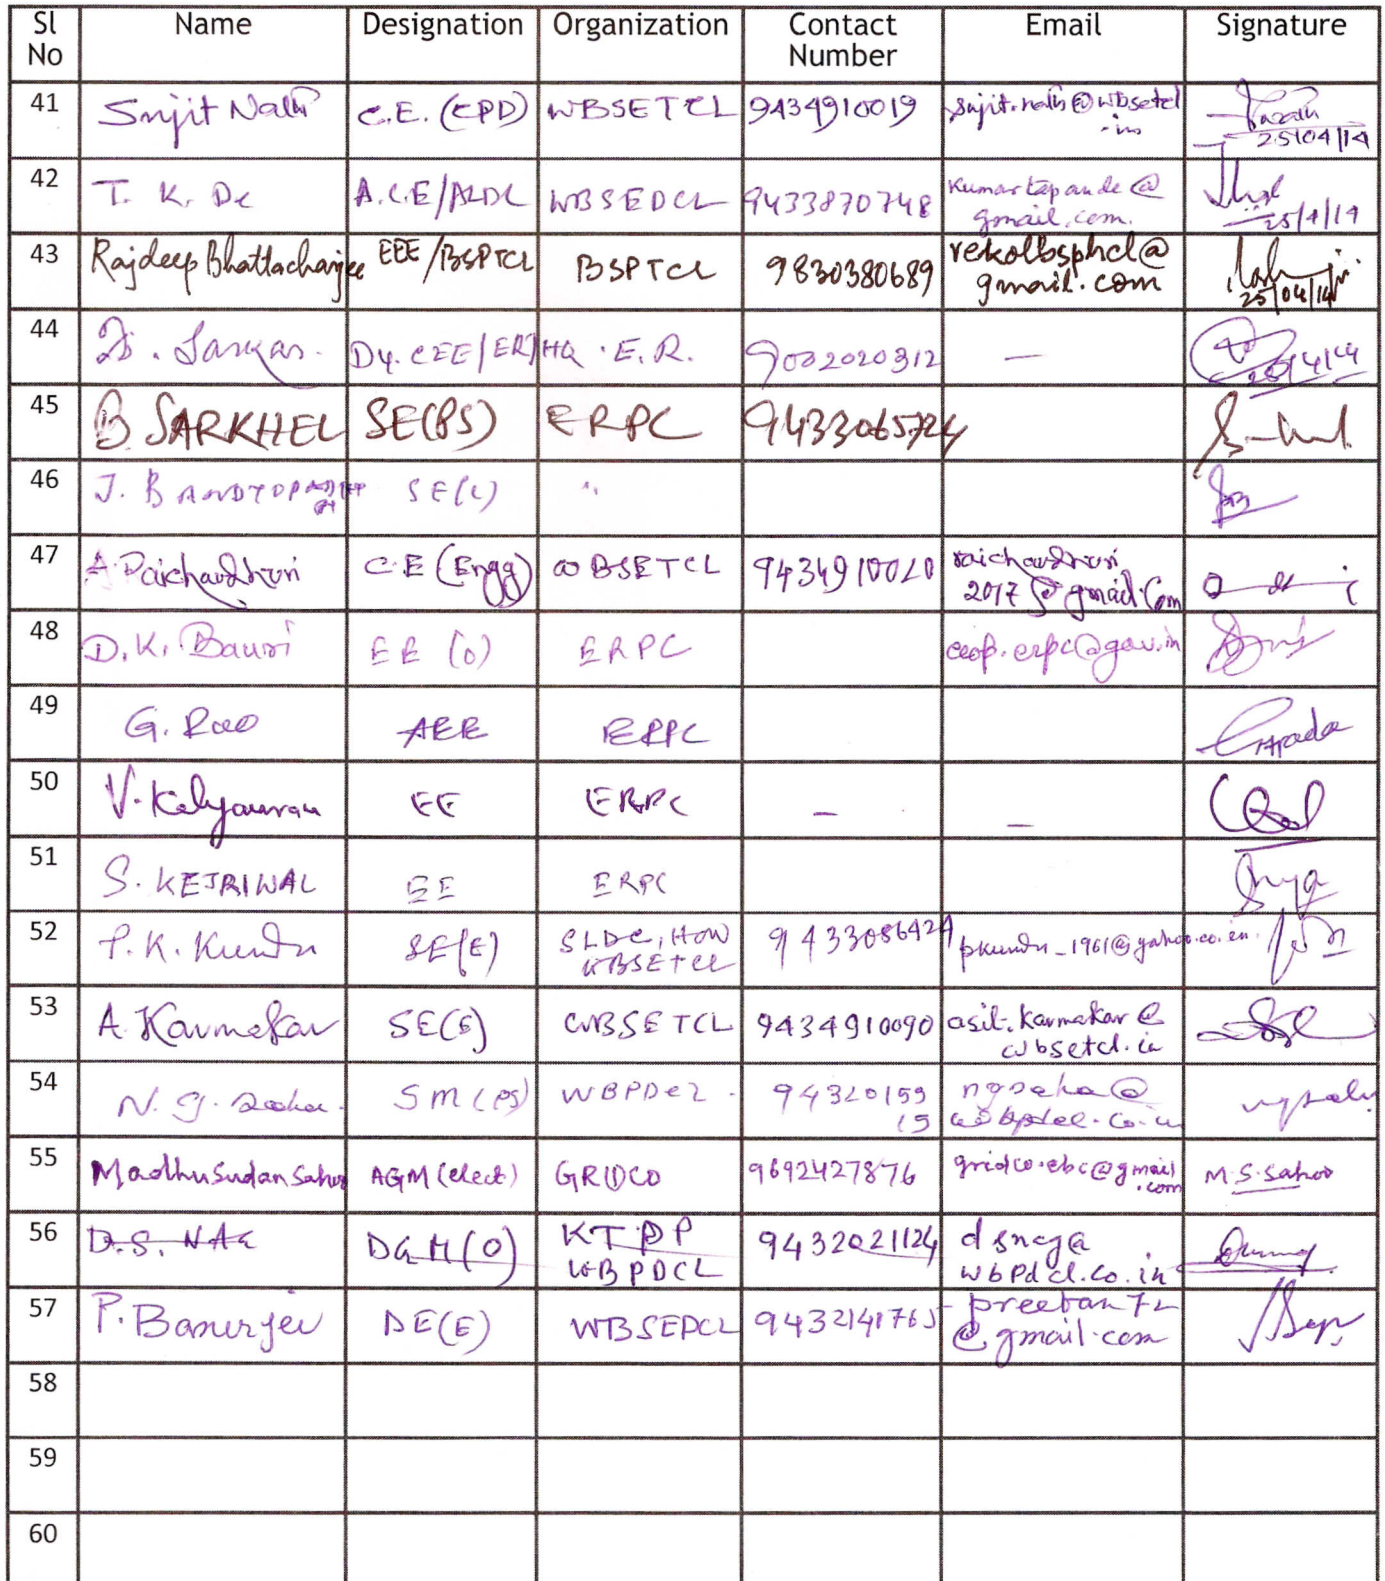 Sl No Name Designation Organization Contact Number Email Signature
41 Sujit Nath C.E. (CPD) WBSETCL 9434910019 sujit.nath@wbsetcl
.in
25/04/14
42 T. K. De A.C.E/ALDC WBSEDCL 9433870748 kumartapande@
gmail.com.
25/4/14
43 Rajdeep Bhattacharjee EEE/BSPTCL BSPTCL 9830380689 rerkolbsphcl@
gmail.com
25/04/14
44 Sarkar. Dy. CEE/ER/HQ E.R. 9002020312 —
25/4/14
45 B SARKHEL SE(PS) ERPC 9433065724
46 J. BANDYOPADHYAY SE(C) "
47 A. Raichaudhuri C.E (Engg) WBSETCL 9434910020 raichaudhuri
2017@gmail.com
48 D.K. Bauri EE (O) ERPC eeop.erpc@gov.in
49 G. Rao AEE ERPC
50 V. Kalyanaraman EE ERPC – –
51 S. KEJRIWAL EE ERPC
52 P.K. Kundu SE(E) SLDC, HOW
WBSETCL 9433086424 pkundu_1961@yahoo.co.in
53 A. Karmakar SE(E) WBSETCL 9434910090 asit.karmakar@
wbsetcl.in
54 N. G. Saha. SM (PS) WBPDCL. 94320159
15 ngsaha@
wbpdcl.co.in
55 Madhusudan Sahoo AGM (elect) GRIDCO 9692427876 gridco.ebc@gmail
.com M.S. Sahoo
56 D.S. NAG DGM(O) KTPP
WBPDCL 9432021124 dsnag@
wbpdcl.co.in
57 P. Banerjee DE(E) WBSEDCL 9432141765 preetan72
@gmail.com
58
59
60